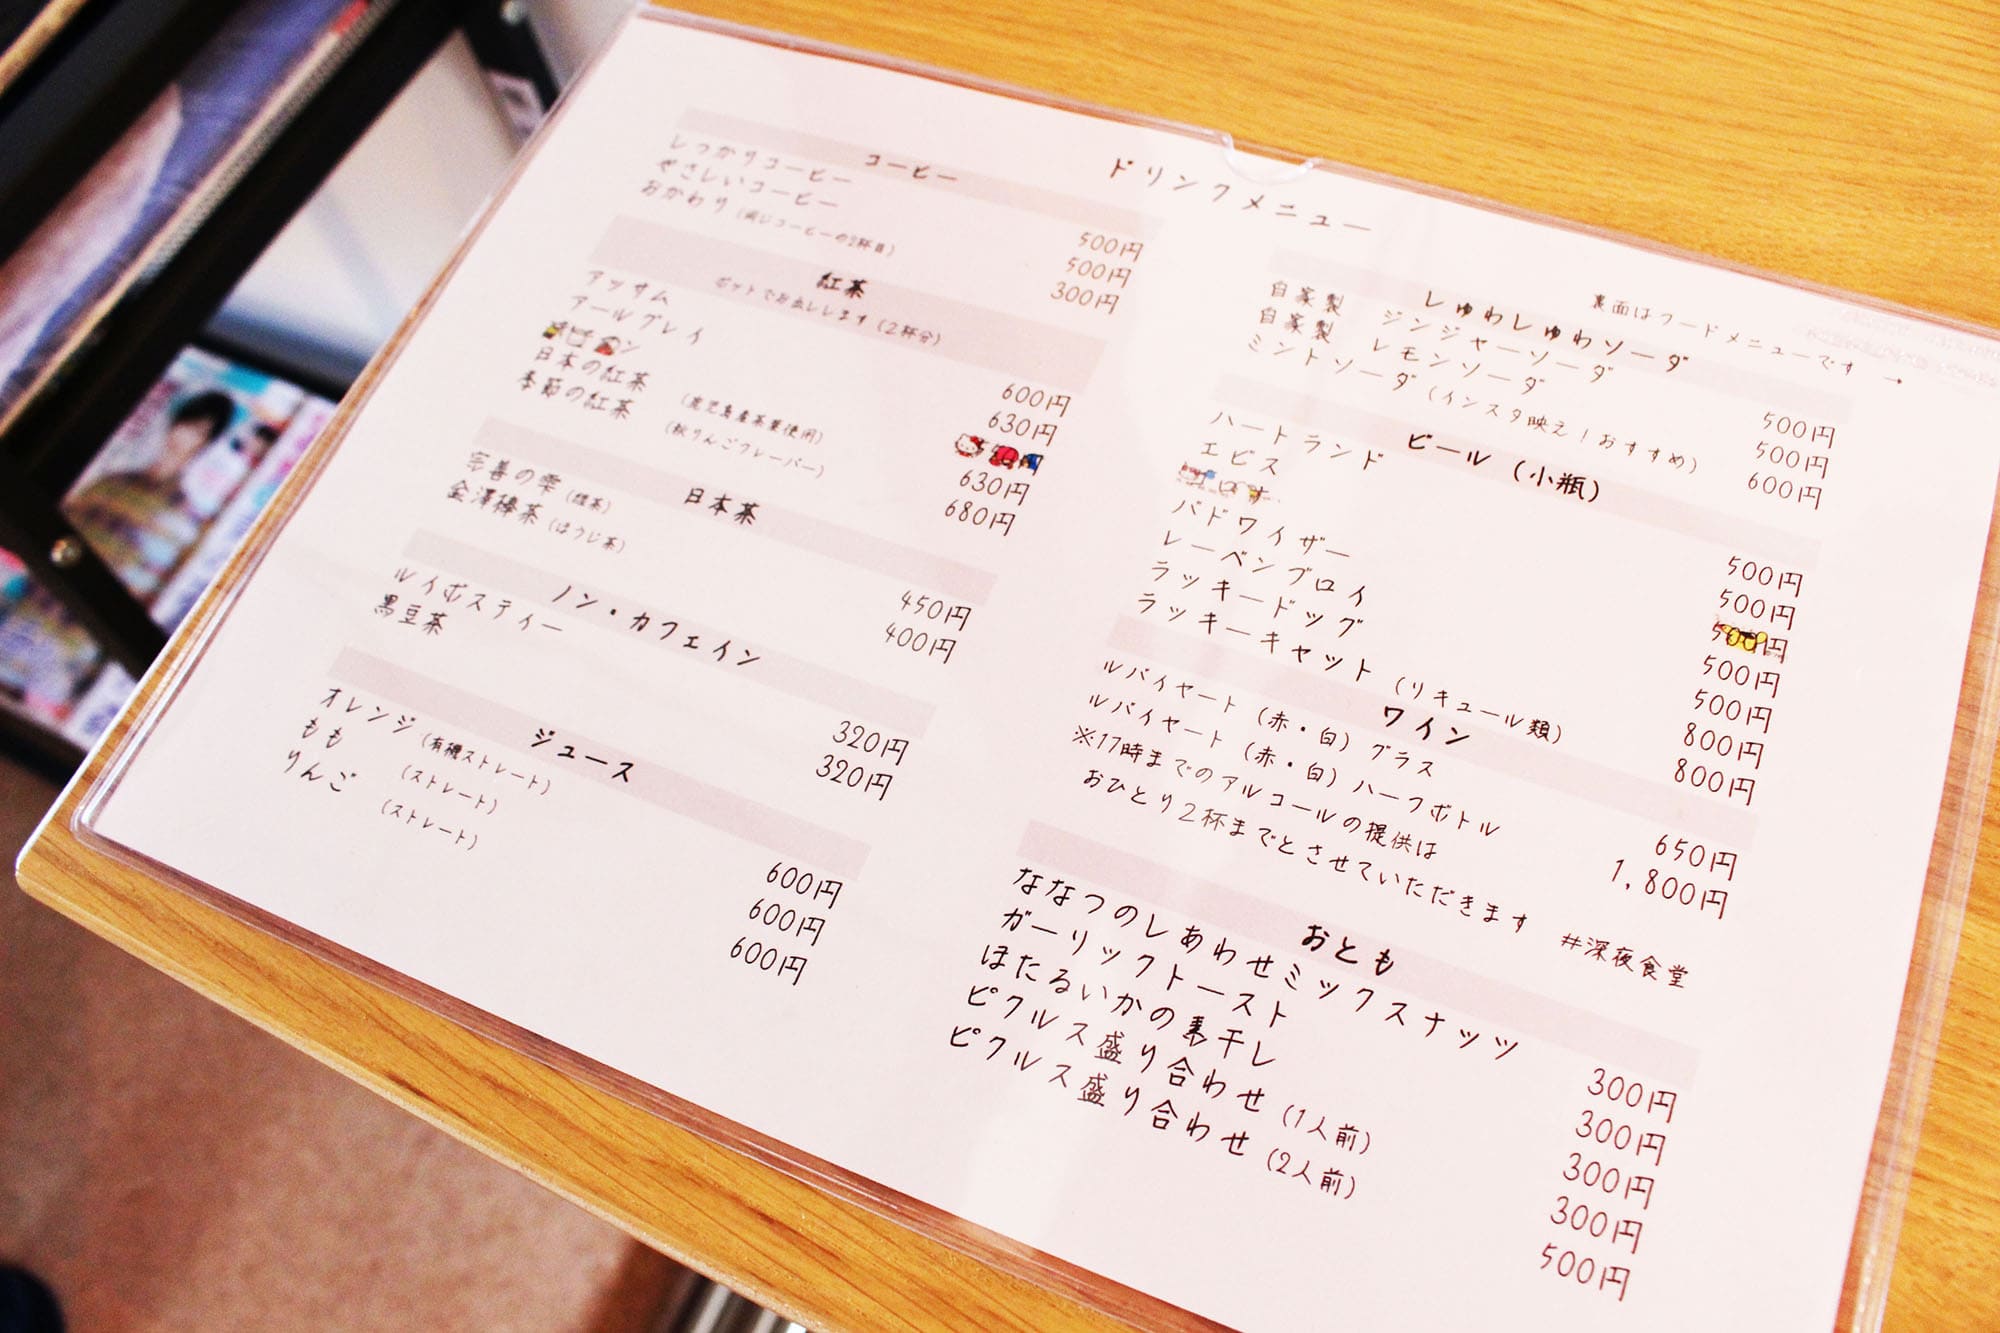 ドリンクメニュー
コーヒー
しっかりコーヒー 500円
やさしいコーヒー 500円
おかわり(同じコーヒーの2杯目) 300円
紅茶
ポットでお出しします(2杯分)
アッサム 600円
アールグレイ 630円
日本の紅茶 (鹿児島産茶葉使用) 630円
季節の紅茶 (秋りんごフレーバー) 680円
日本茶
宗善の雫(緑茶) 450円
金澤棒茶(ほうじ茶) 400円
ノン・カフェイン
ルイボスティー 320円
黒豆茶 320円
ジュース
オレンジ(有機ストレート) 600円
もも (ストレート) 600円
りんご (ストレート) 600円
裏面はフードメニューです →
しゅわしゅわソーダ
自家製 ジンジャーソーダ 500円
自家製 レモンソーダ 500円
ミントソーダ(インスタ映え!おすすめ) 600円
ビール(小瓶)
ハートランド 500円
エビス 500円
バドワイザー 500円
レーベンブロイ 500円
ラッキードッグ 800円
ラッキーキャット(リキュール類) 800円
ワイン
ルバイヤート(赤・白)グラス 650円
ルバイヤート(赤・白)ハーフボトル 1,800円
※17時までのアルコールの提供は
おひとり2杯までとさせていただきます #深夜食堂
おとも
ななつのしあわせミックスナッツ 300円
ガーリックトースト 300円
ほたるいかの素干し 300円
ピクルス盛り合わせ(1人前) 300円
ピクルス盛り合わせ(2人前) 500円